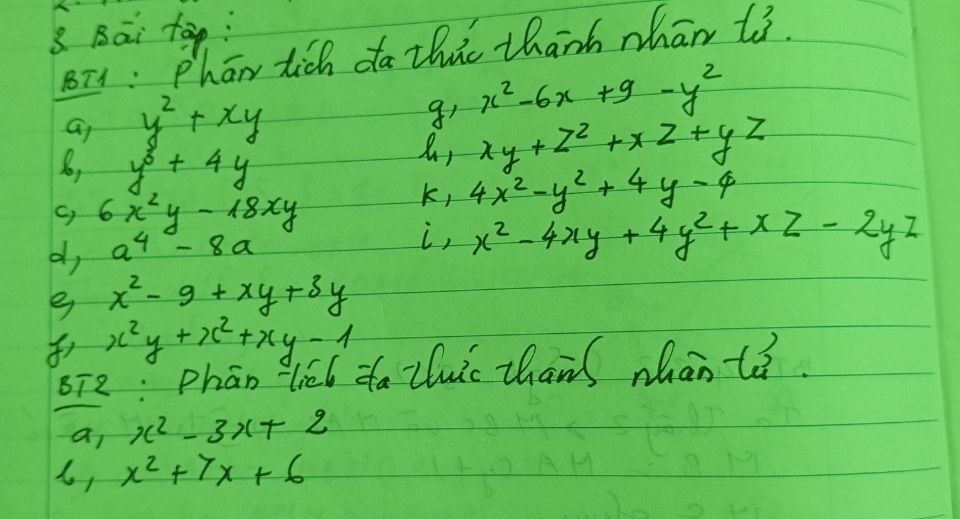 3 Bài tập:
BT1 : Phân tích đa thức thành nhân tử.
a, y² + xy
b, y³ + 4y
c, 6x²y - 18xy
d, a⁴ - 8a
e, x² - 9 + xy + 3y
f, x²y + x² + xy - 1
g, x² - 6x + 9 - y²
h, xy + z² + xz + yz
k, 4x² - y² + 4y - 4
i, x² - 4xy + 4y² + xz - 2yz
BT2 : Phân tích đa thức thành nhân tử.
a, x² - 3x + 2
b, x² + 7x + 6